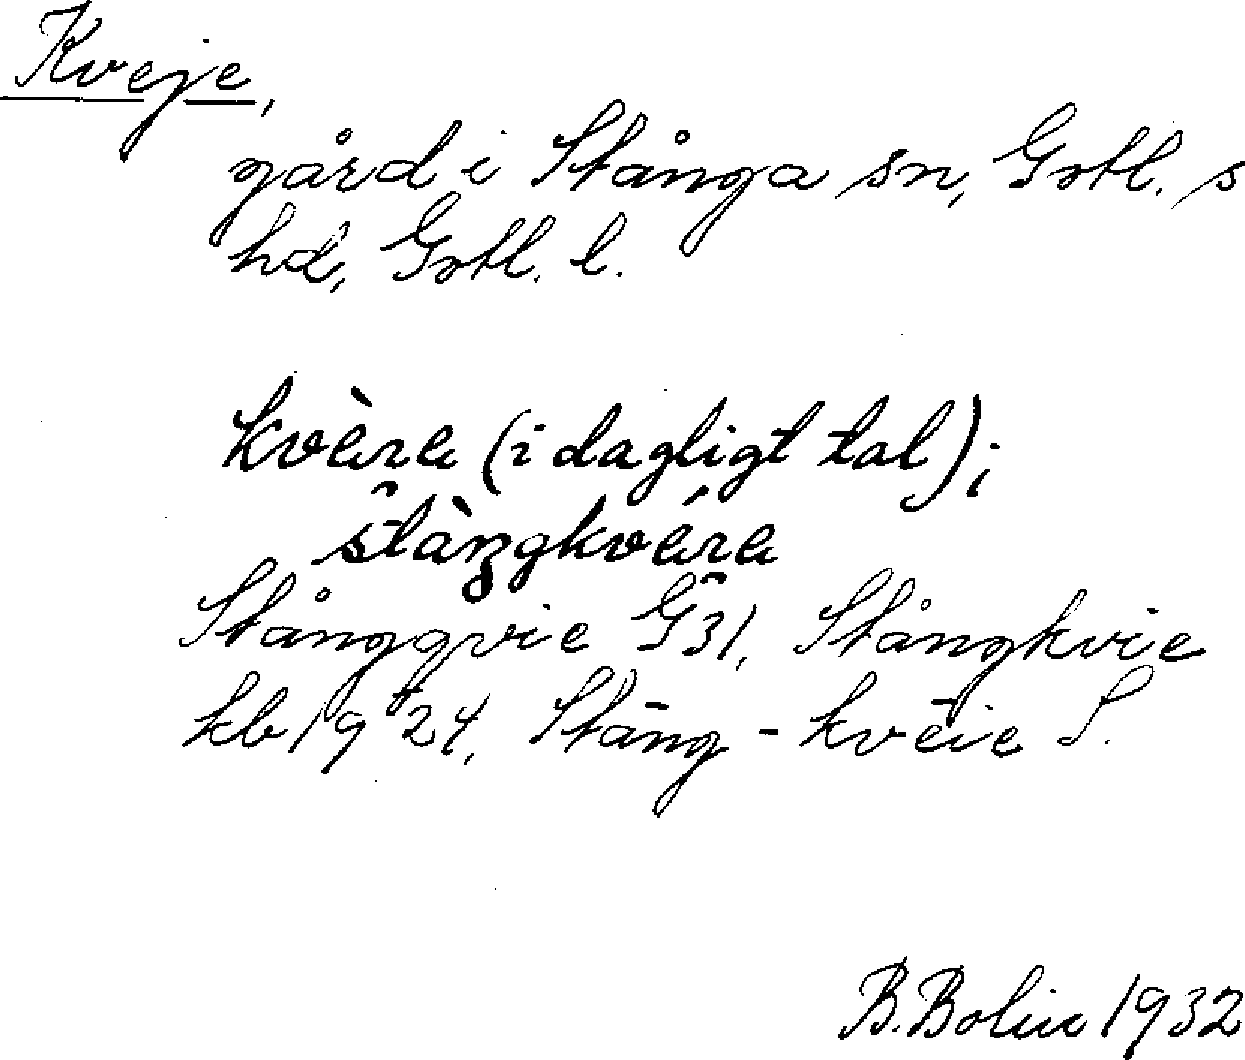 Kveje,
gård i Stånga sn, Gotl. s
hd, Gotl. l.
(i dagligt tal);
Stånggvie G31, Stångkvie
kb 19 24, Stāng - kvēie S.
B. Bolin 1932